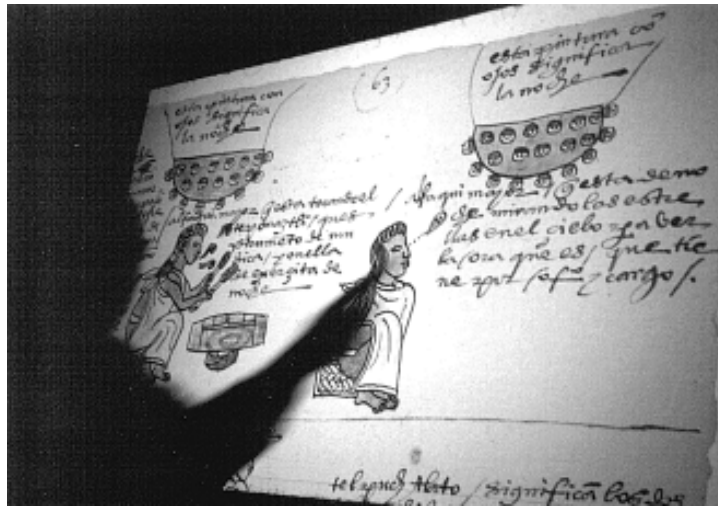 (63)
esta pintura con
ojos significa
la noche
esta pintura cō
ojos significa
la noche
alfaqui mayor / questa tocando el
teponaztli / ques
ystrumēto de mu
sica / con ella
se exergita de
noche
alfaqui mayor / questa de no
che mirando las estre
llas en el cielo / para ver
la ora que es / que tie
ne por sofiº y cargo /.
significā los dos